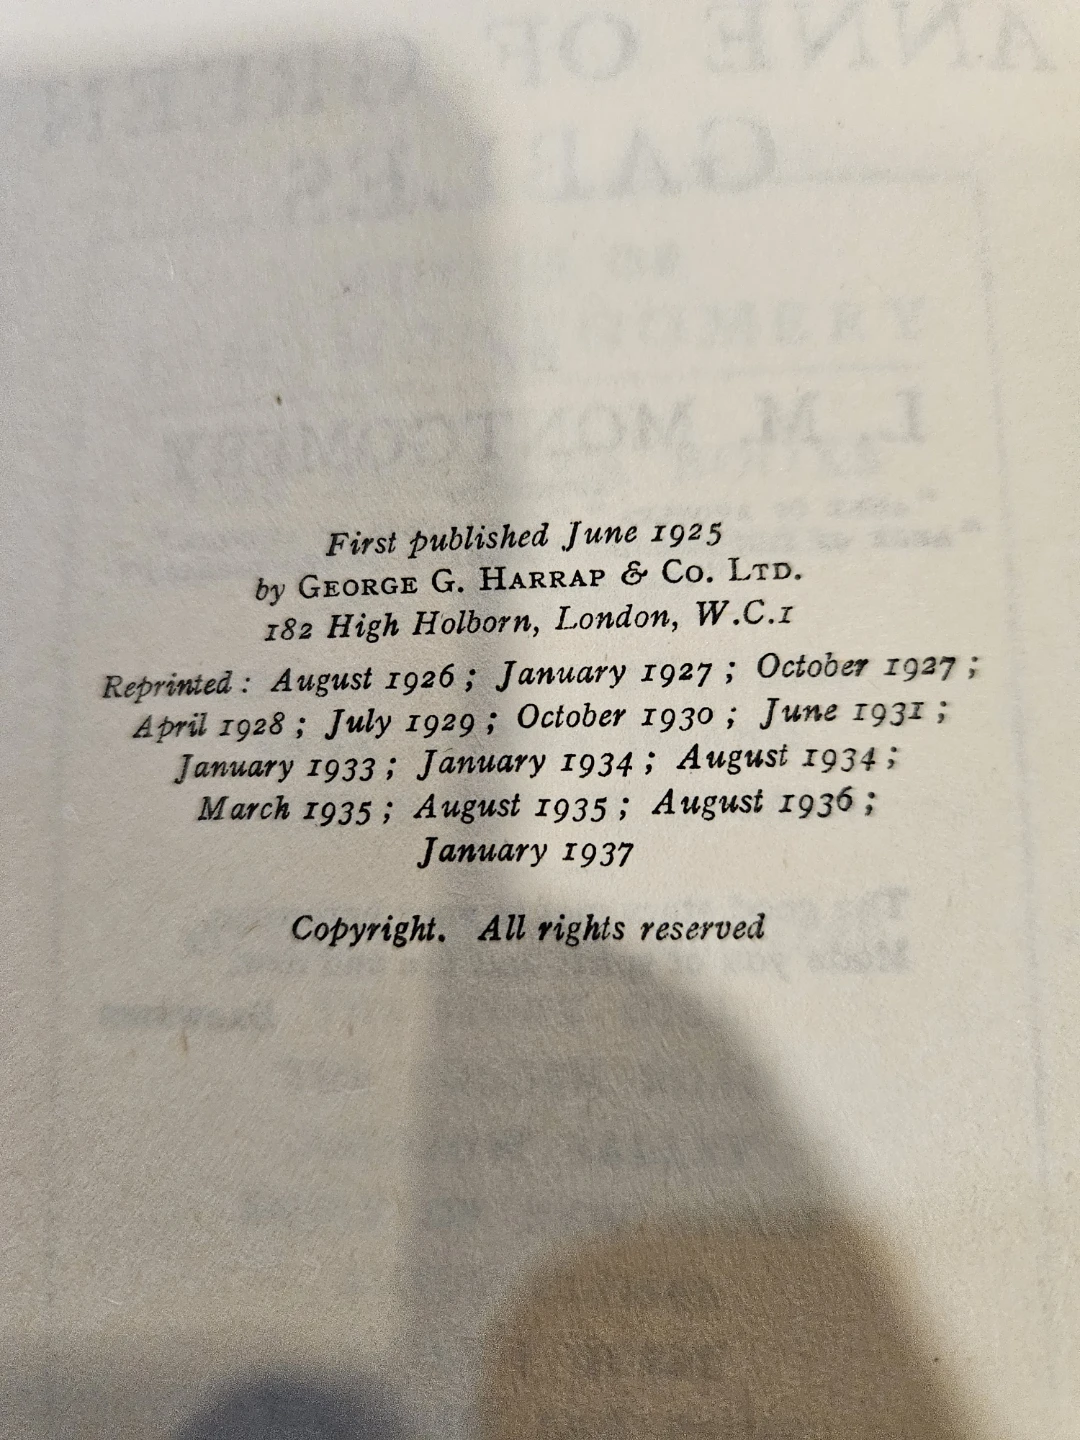 ANNE OF GREEN
GABLES
L. M. MONTGOMERY
First published June 1925
by GEORGE G. HARRAP & CO. LTD.
182 High Holborn, London, W.C.1
Reprinted: August 1926; January 1927; October 1927;
April 1928; July 1929; October 1930; June 1931;
January 1933; January 1934; August 1934;
March 1935; August 1935; August 1936;
January 1937
Copyright. All rights reserved